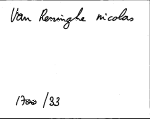 Van Reninghe nicolas
1700/33